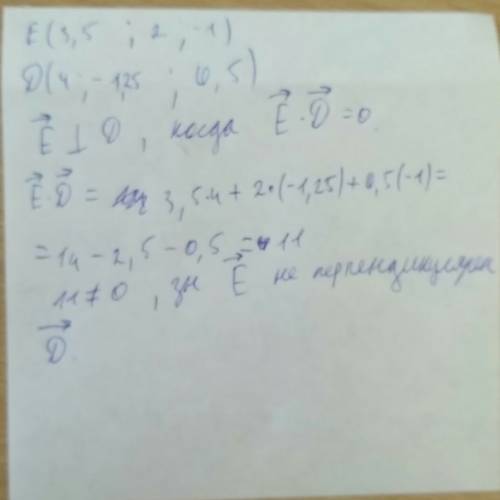 E(3,5 ; 2 ; -1)
D(4 ; -1,25 ; 0,5)
E ⊥ D , когда E · D = 0
E · D = 3,5·4 + 2·(-1,25) + 0,5(-1) =
= 14 - 2,5 - 0,5 = 11
11 ≠ 0 , зн E не перпендикулярен
D.